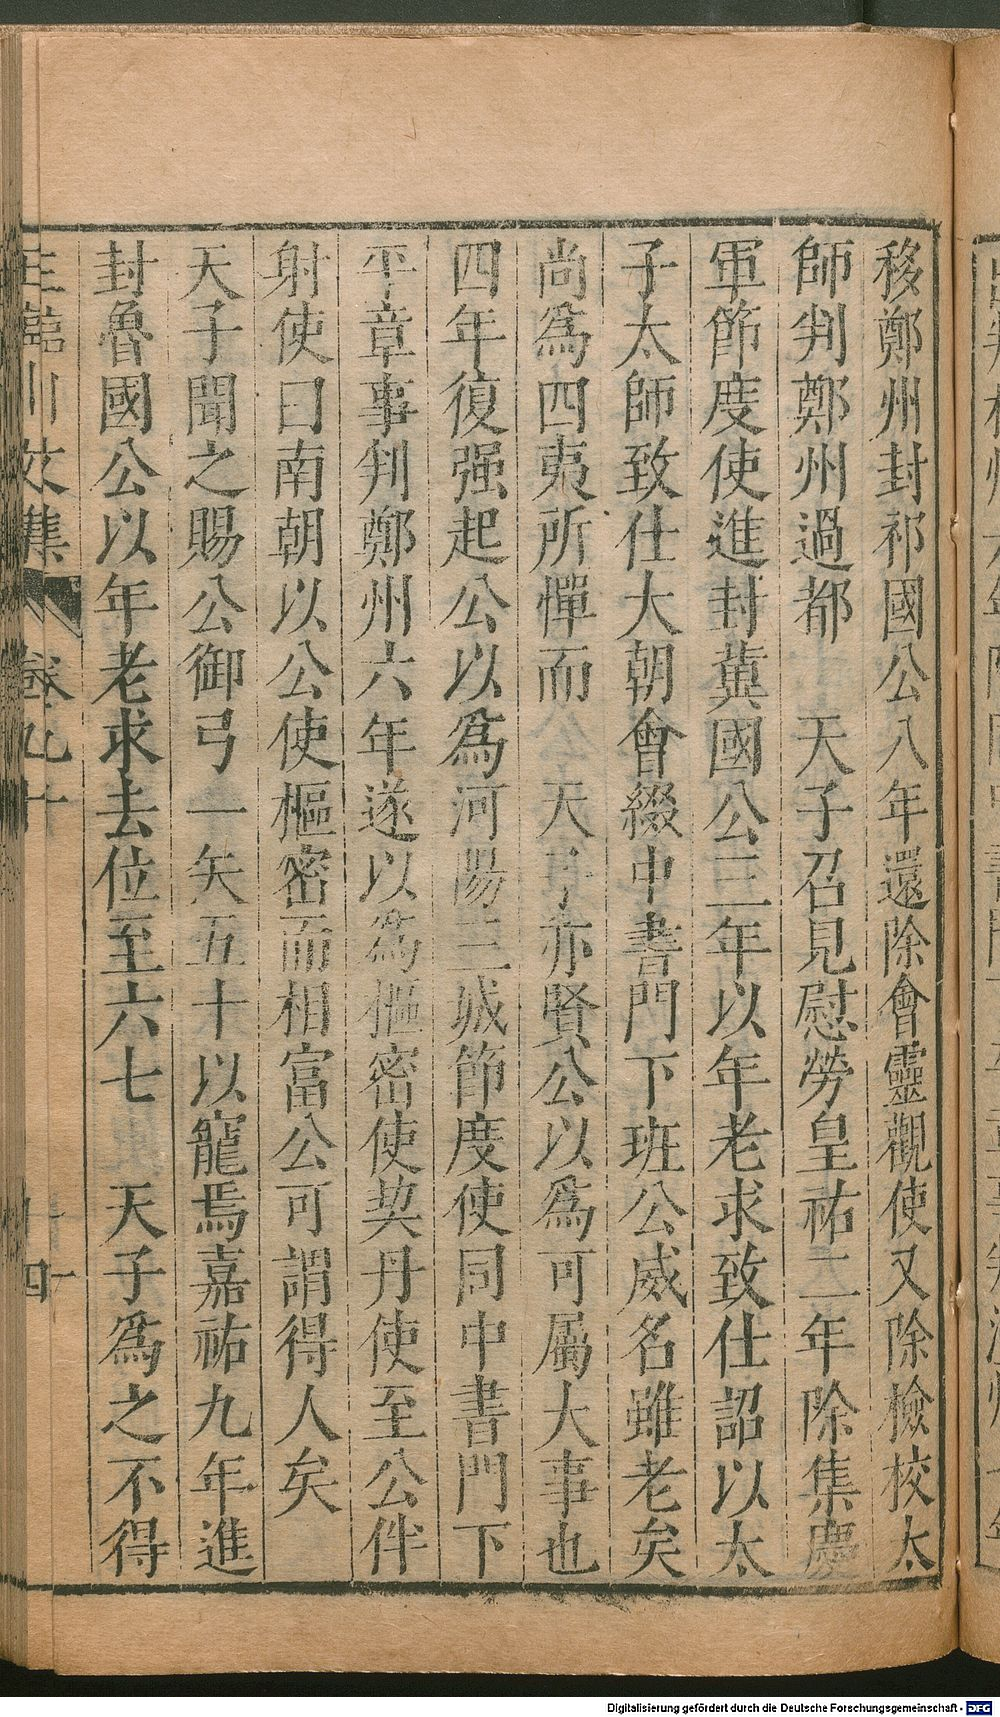 移鄭州封祁國公八年還除會靈觀使又除檢校太
師判鄭州過都　天子召見慰勞皇祐二年除集慶
軍節度使進封冀國公三年以年老求致仕詔以太
子太師致仕大朝會綴中書門下班公威名雖老矣
尚爲四夷所憚而　天子亦賢公以爲可屬大事也
四年復强起公以爲河陽三城節度使同中書門下
平章事判鄭州六年遂以爲樞密使契丹使至公伴
射使曰南朝以公使樞密而相富公可謂得人矣
天子聞之賜公御弓一矢五十以寵焉嘉祐九年進
封魯國公以年老求去位至六七　天子爲之不得
王臨川文集　卷九十　四
Digitalisierung gefördert durch die Deutsche Forschungsgemeinschaft - DFG